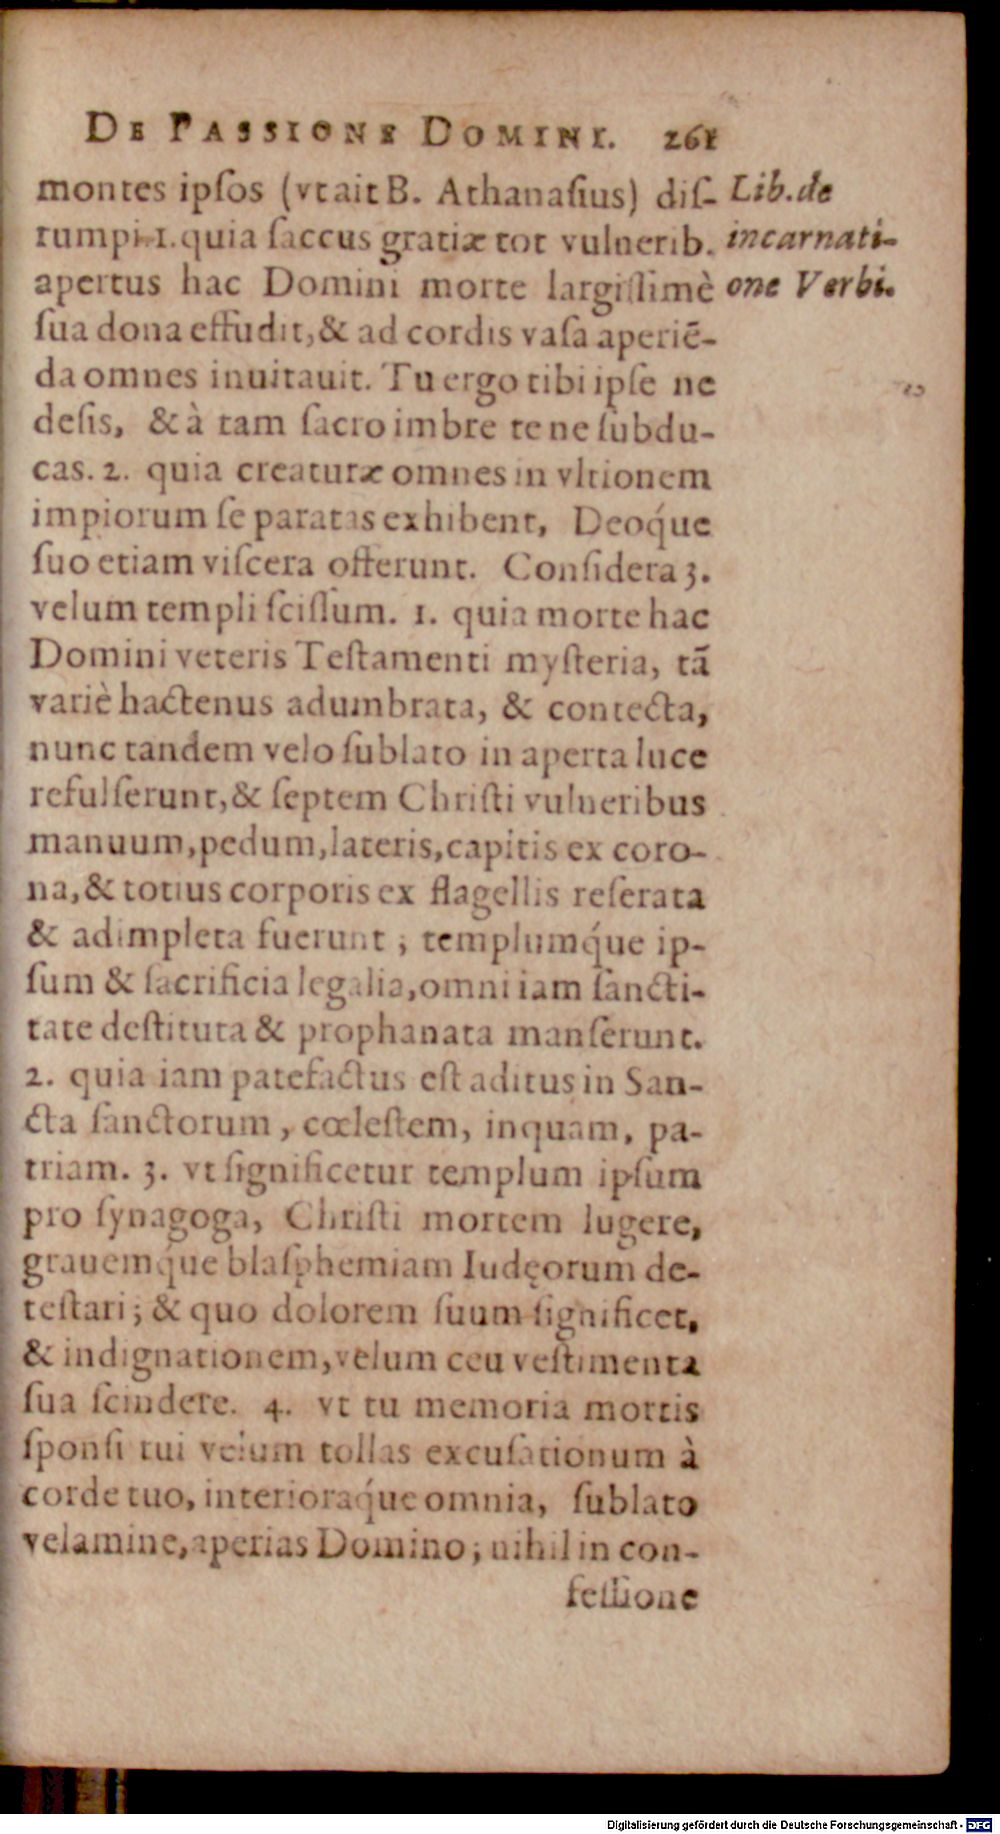 DE PASSIONE DOMINI. 261
montes ipsos (vt ait B. Athanasius) dis-
rumpi. 1. quia saccus gratiæ tot vulnerib.
apertus hac Domini morte largissimè
sua dona effudit, & ad cordis vasa aperiē-
da omnes inuitauit. Tu ergo tibi ipse ne
desis, & à tam sacro imbre te ne subdu-
cas. 2. quia creaturæ omnes in vltionem
impiorum se paratas exhibent, Deoq́ue
suo etiam viscera offerunt. Considera 3.
velum templi scissum. 1. quia morte hac
Domini veteris Testamenti mysteria, tã
variè hactenus adumbrata, & contecta,
nunc tandem velo sublato in aperta luce
refulserunt, & septem Christi vulneribus
manuum, pedum, lateris, capitis ex coro-
na, & totius corporis ex flagellis reserata
& adimpleta fuerunt; templumq́ue ip-
sum & sacrificia legalia, omni iam sancti-
tate destituta & prophanata manserunt.
2. quia iam patefactus est aditus in San-
cta sanctorum, cœlestem, inquam, pa-
triam. 3. vt significetur templum ipsum
pro synagoga, Christi mortem lugere,
grauemq́ue blasphemiam Iudęorum de-
testari; & quo dolorem suum significet,
& indignationem, velum ceu vestimenta
sua scindere. 4. vt tu memoria mortis
sponsi tui velum tollas excusationum à
corde tuo, interioraq́ue omnia, sublato
velamine, aperias Domino; nihil in con-
fessione
Lib. de
incarnati-
one Verbi.
Digitalisierung gefördert durch die Deutsche Forschungsgemeinschaft - DFG